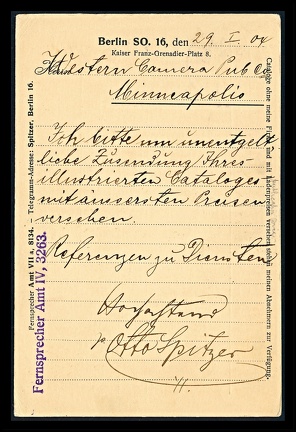 Berlin SO. 16, den 29. I 04
Kaiser Franz-Grenadier-Platz 8.
Western Camera Pub Co
Minneapolis
Ich bitte um unentgelt
liche Zusendung Ihres
illustrierten Cataloges
mit äussersten Preisen
versehen.
Referenzen zu Diensten
Hochachtend
Otto Spitzer
Fernsprecher Amt VII a. 8134. — Telegramm-Adresse: Spitzer, Berlin 16.
Fernsprecher Amt IV, 3263.
Cataloge ohne meine Firma und mit Ladenpreisen versehen stehen meinen Abnehmern zur Verfügung.